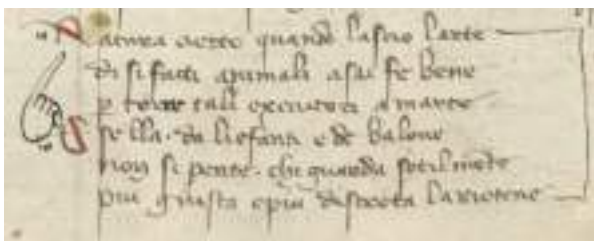 Natura certo quando lascio larte
di si facti animali asai fe bene
p torre tali executori a marte
Se lla. da liefanti e de balene
non si pente. chi guarda sotilmēte
piu giusta e piu discreta la ne tene